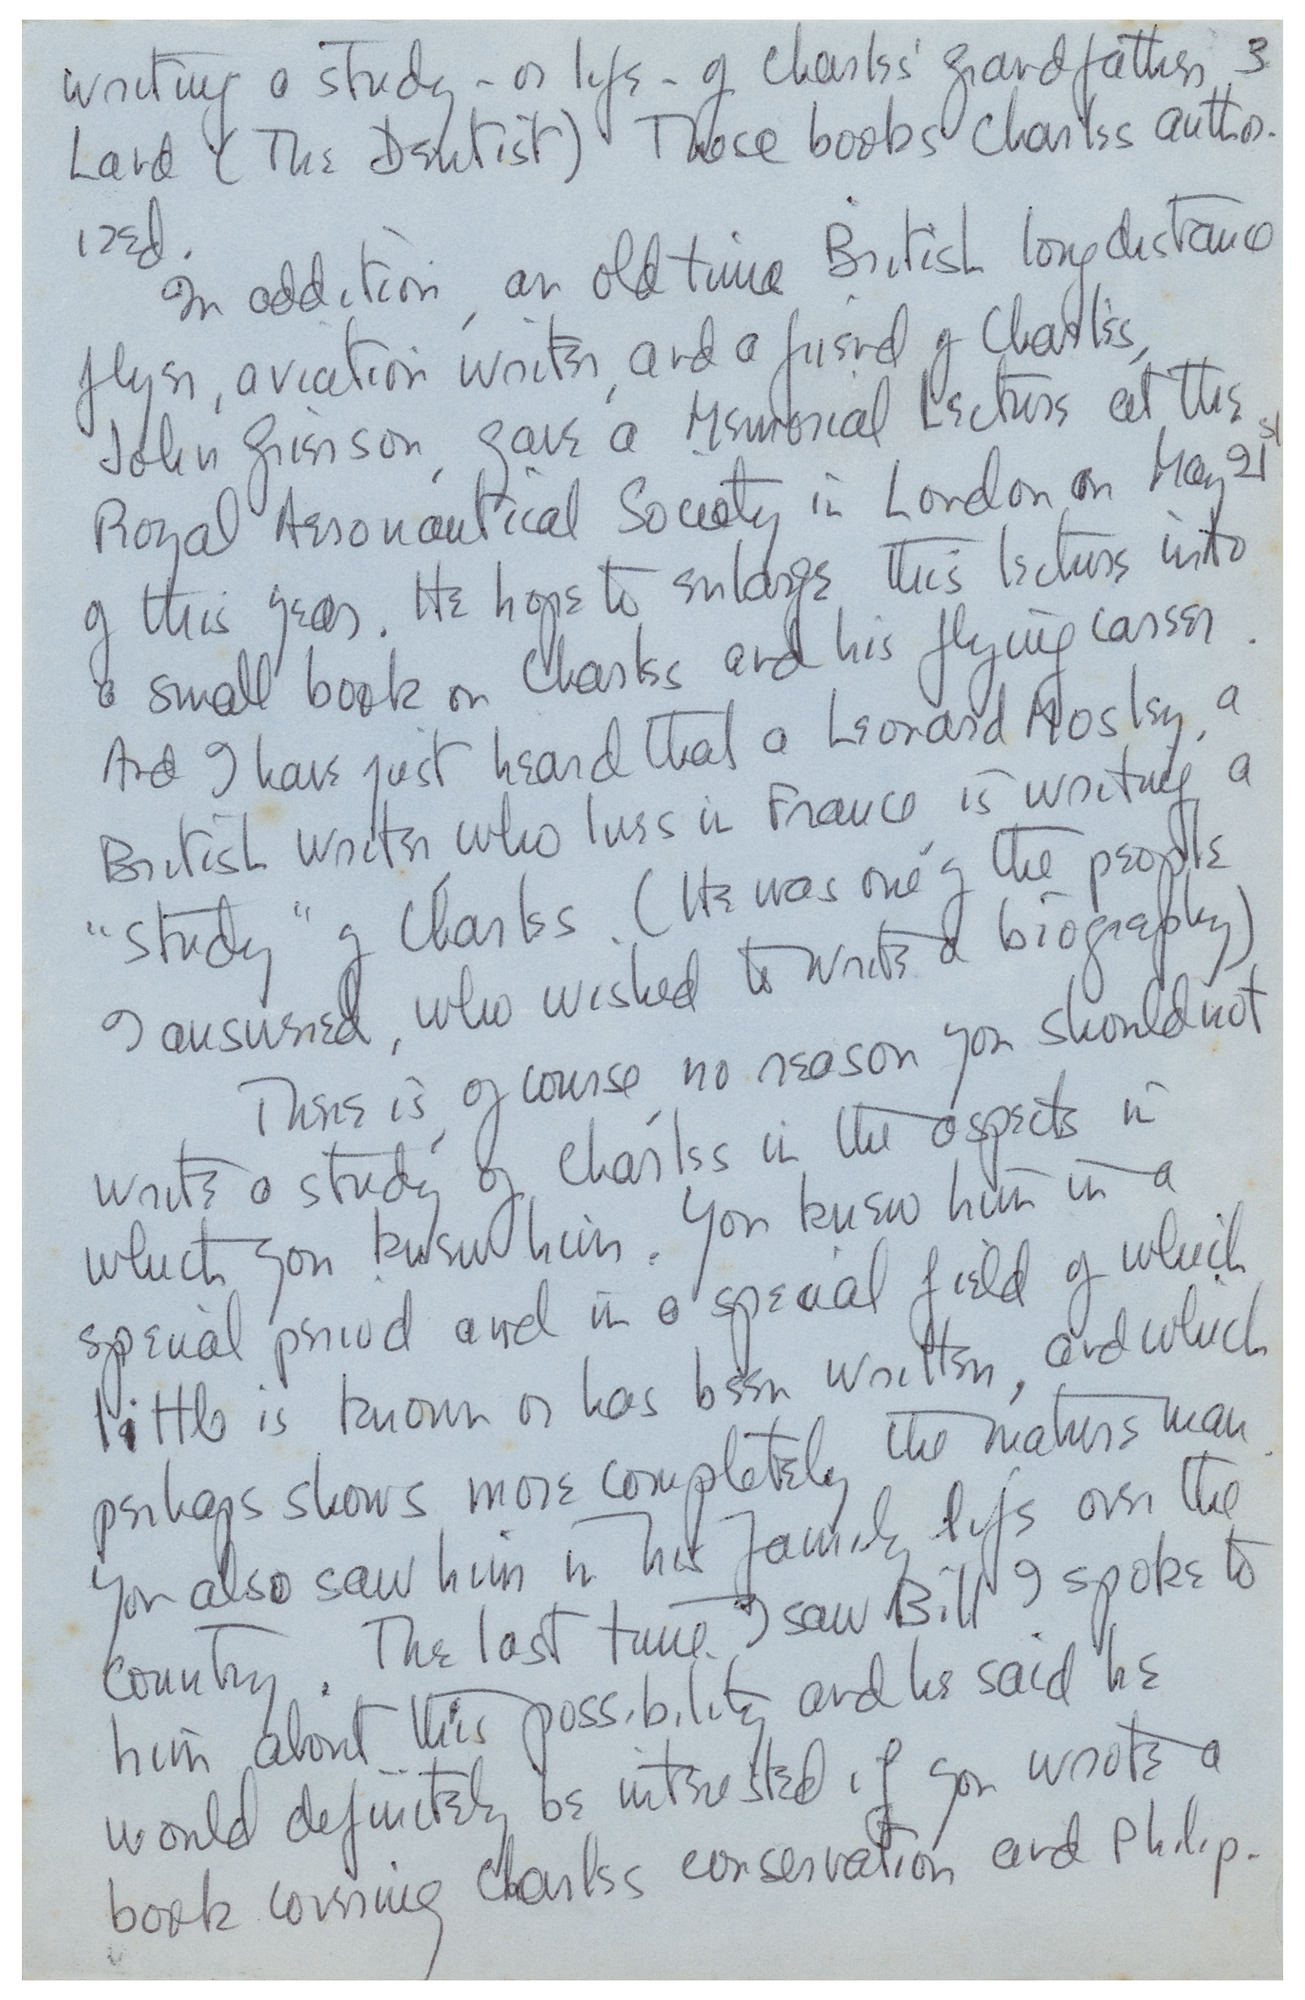 writing a study - or life - of Charles' grandfather 3
Land (The Dentist) Those books Charles author-
ized.
In addition, an old time British long distance
flyer, aviation writer, and a friend of Charles,
John Grierson, gave a Memorial Lecture at the
Royal Aeronautical Society in London on May 21st
of this year. He hope to enlarge this lecture into
a small book on Charles and his flying career.
And I have just heard that a Leonard Mosley, a
British writer who lives in France is writing a
"study" of Charles. (He was one of the people
I answered, who wished to write a biography)
There is, of course no reason you should not
write a study of Charles in the aspects in
which you knew him. You knew him in a
special period and in a special field of which
little is known or has been written, and which
perhaps shows more completely the mature man.
You also saw him in his family life over the
country. The last time I saw Bill I spoke to
him about this possibility and he said he
would definitely be interested if you wrote a
book covering Charles conservation and Philip-